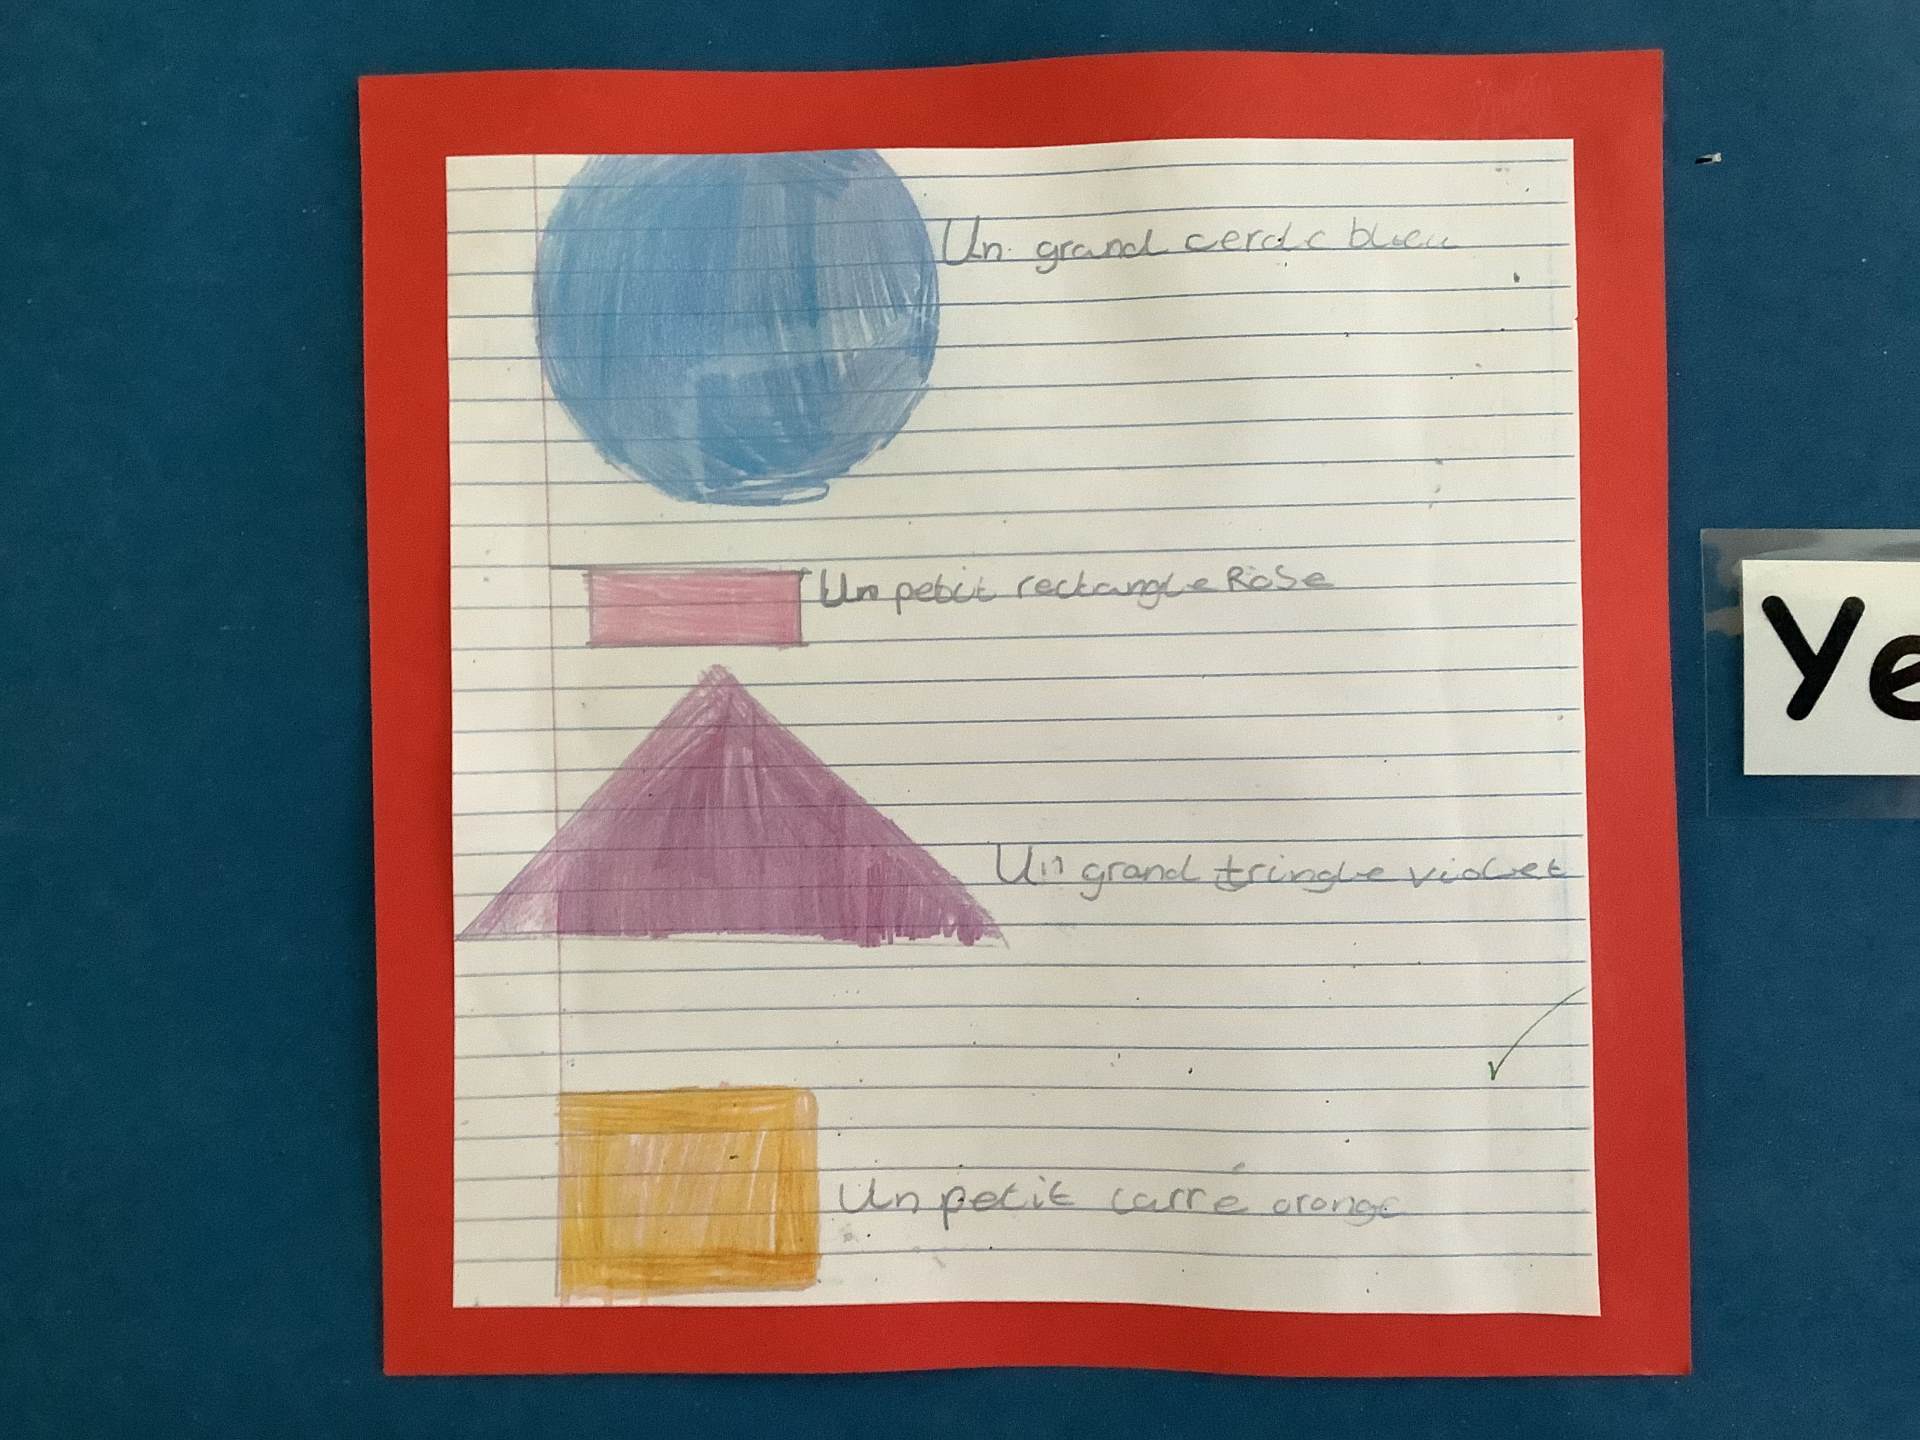 Un grand cercle bleu
Un petit rectangle Rose
Ye
Un grand tringle violet
Un petit carré orange